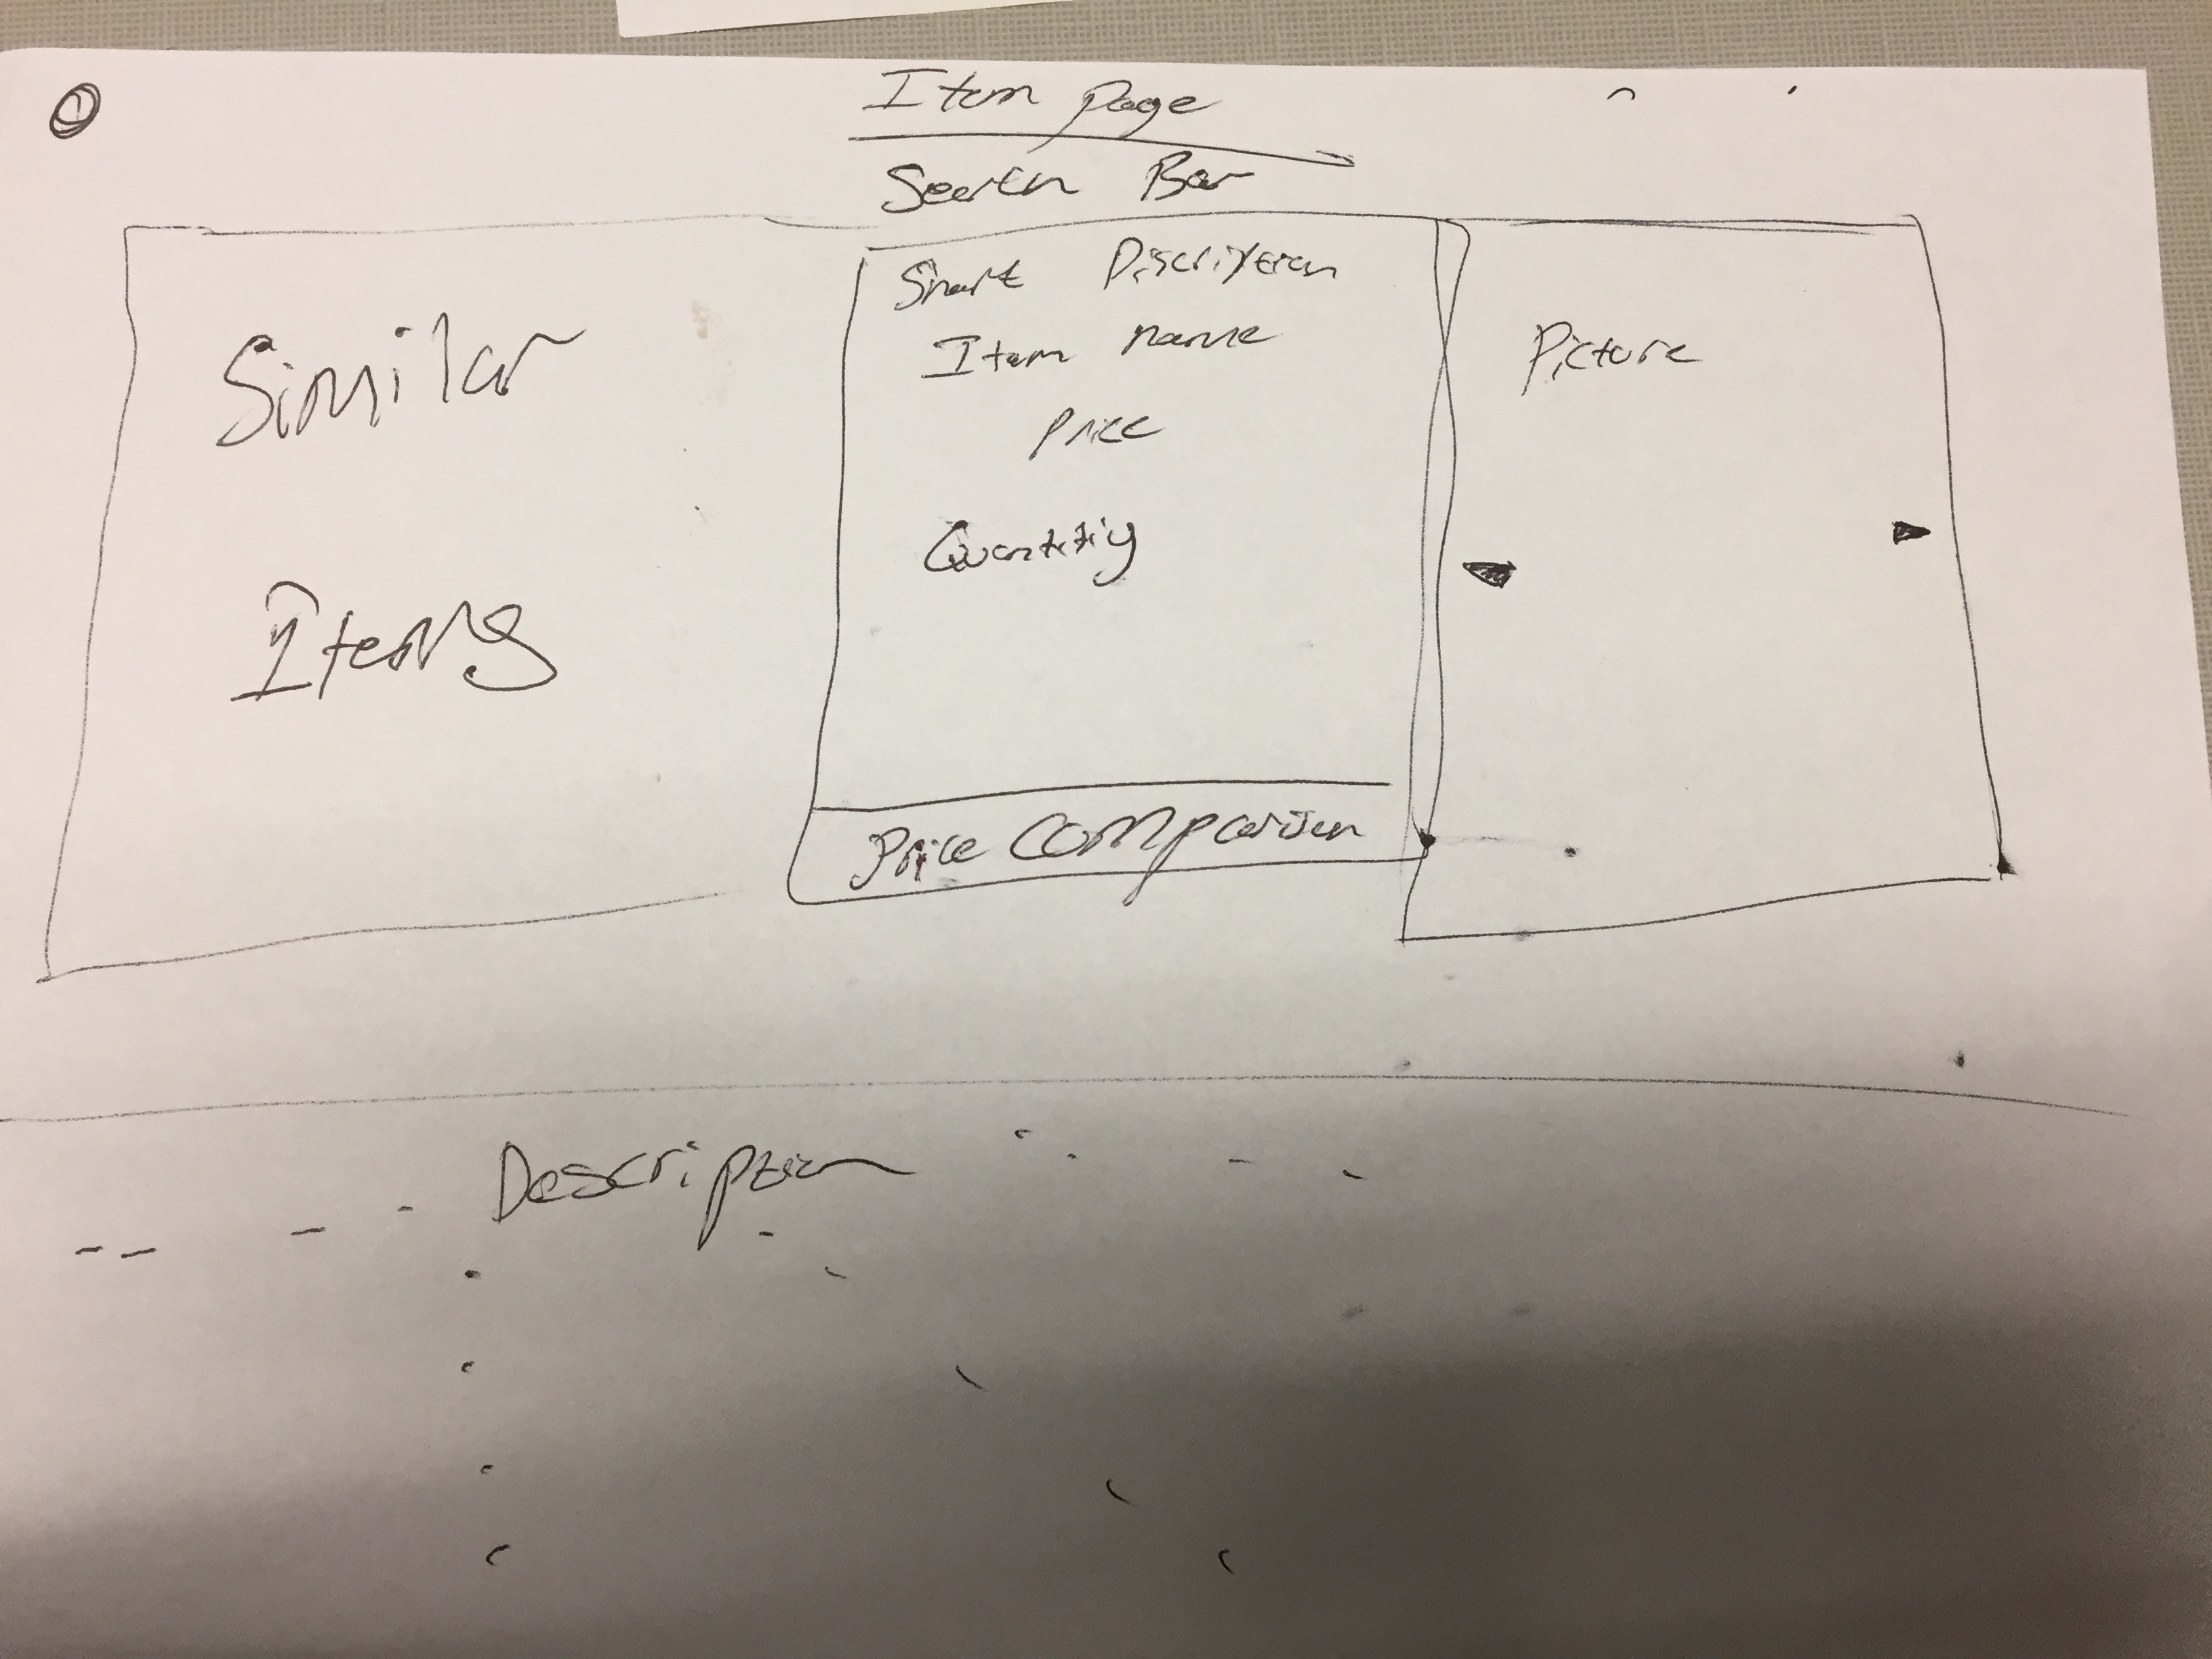 ①
Item Page
Search Bar
Similar
Items
Short Discription
Item name
Price
Quantity
Price Comparison
Picture
Description